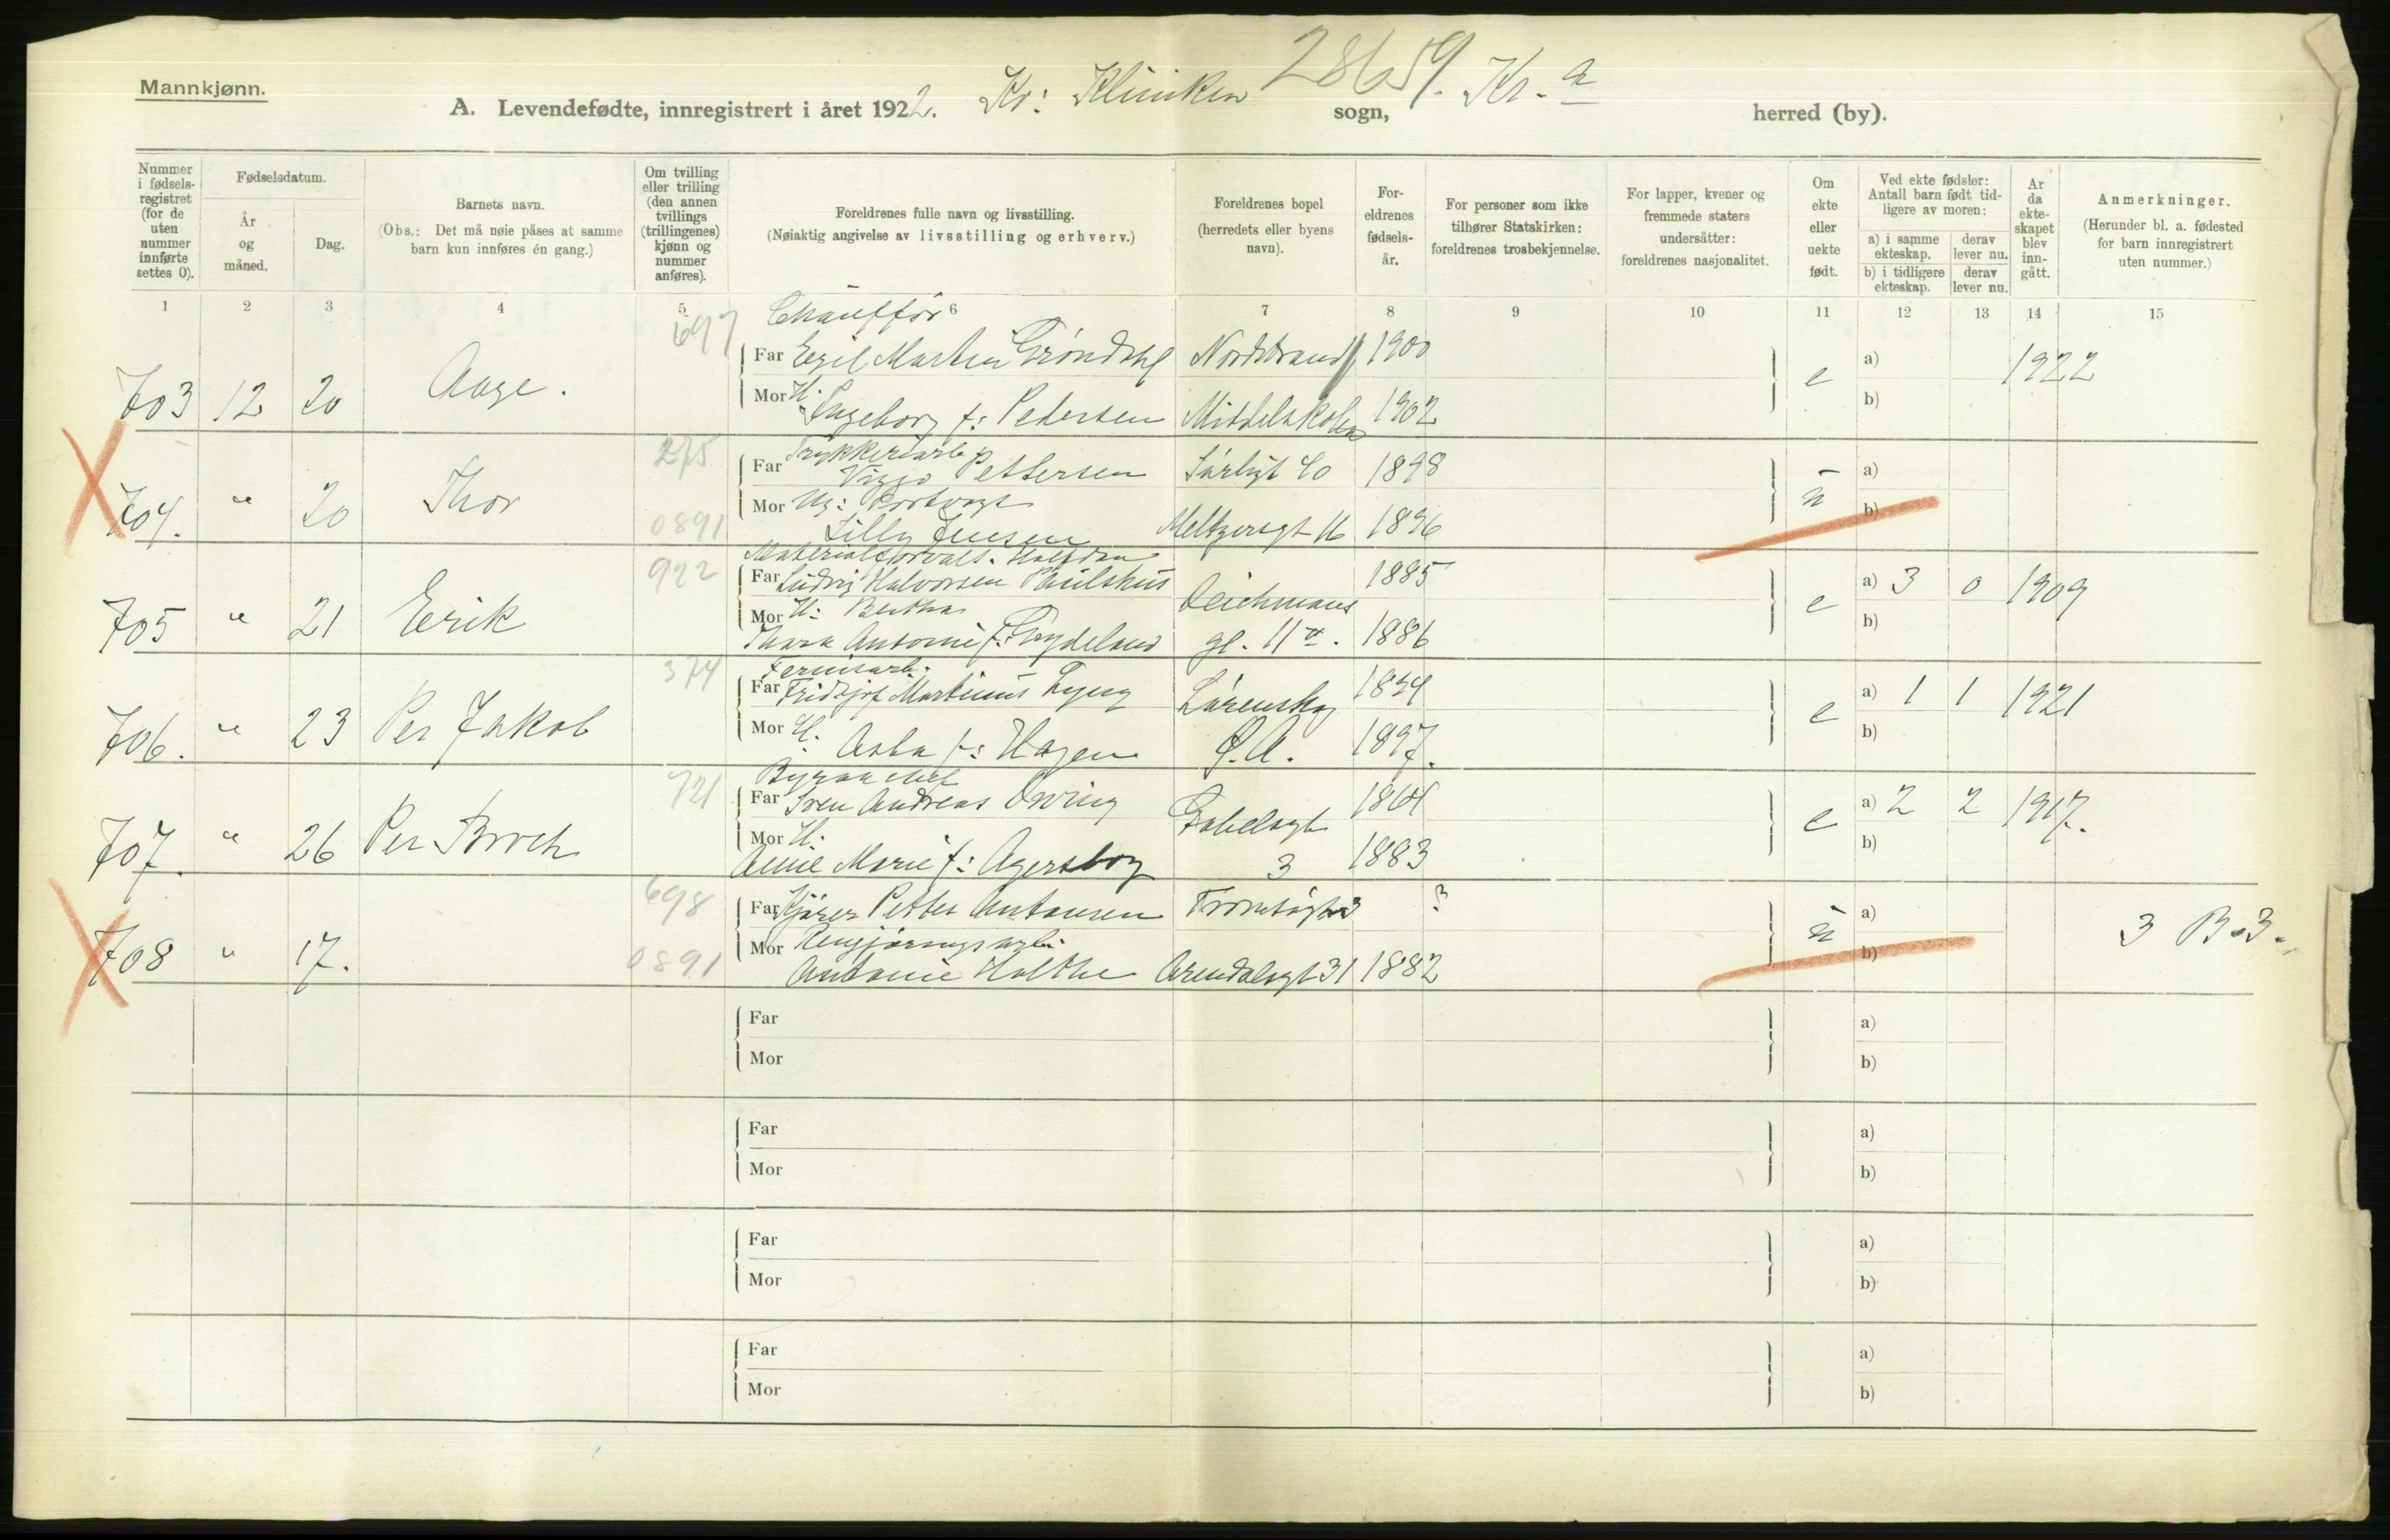 28659.
Mannkjønn.
A. Levendefødte, innregistrert i året 1922. Kr: Kliniken sogn, Kr.a herred (by).
Nummer i fødselsregistret (for de uten nummer innførte settes 0).
Fødselsdatum.
År og måned.
Dag.
Barnets navn.
(Obs.: Det må nøie påses at samme barn kun innføres én gang.)
Om tvilling eller trilling (den annen tvillings (trillingenes) kjønn og nummer anføres).
Foreldrenes fulle navn og livsstilling.
(Nøiaktig angivelse av livsstilling og erhverv.)
Foreldrenes bopel (herredets eller byens navn).
Foreldrenes fødselsår.
For personer som ikke tilhører Statskirken: foreldrenes trosbekjennelse.
For lapper, kvener og fremmede staters undersåtter: foreldrenes nasjonalitet.
Om ekte eller uekte født.
Ved ekte fødsler: Antall barn født tidligere av moren:
a) i samme ekteskap.
derav lever nu.
b) i tidligere ekteskap.
derav lever nu.
År da ekteskapet blev inngått.
Anmerkninger.
(Herunder bl. a. fødested for barn innregistrert uten nummer.)
1 2 3 4 5 6 7 8 9 10 11 12 13 14 15
697 Chauffør
703 12 20 Aage. Far Egil Martin Grøndahl Nordstrand 1900 e a) 1922
Mor H. Ingeborg f: Pedersen Middelskolen 1902 b)
275 Trykkeriarb
704. " 20 Thor Far Viggo Pettersen Sørligt 40 1898 u a)
Mor Ug:
0891 Lilly Jensen Meltzersgt 16 1896 b)
922 Materialforvalt. Halfdan
705 " 21 Erik Far Ludvig Halvorsen Paulshus Deichmans 1885 e a) 3 0 1909
Mor H: Bertha
Thara Antonie f: gt. 11 1886 b)
374
706. " 23 Per Jakob Far Fridtjof Martinus Lyng Lørenskog 1894 e a) 1 1 1921
Mor H. Asta f: Hagen Ø.A. 1897. b)
721 Byraachef
707. " 26 Per Broch Far Sven Andreas Øvring Gabelsgt 1864 e a) 2 2 1917.
Mor H.
Anne Marie f: Agersborg 3 1883 b)
698
708 " 17. Far Kjører Petter Antonsen Tromsøgt 3 ? u a) 3 B.3.
Mor Rengjøringsarb.
0891 Antonie Holthe Arendalsgt 31 1882 b)
Far a)
Mor b)
Far a)
Mor b)
Far a)
Mor b)
Far a)
Mor b)